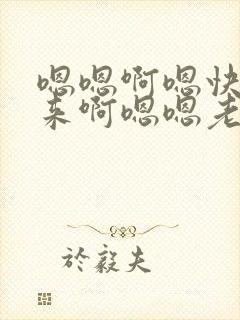 嗯嗯啊嗯快
来啊嗯嗯老
於毅夫